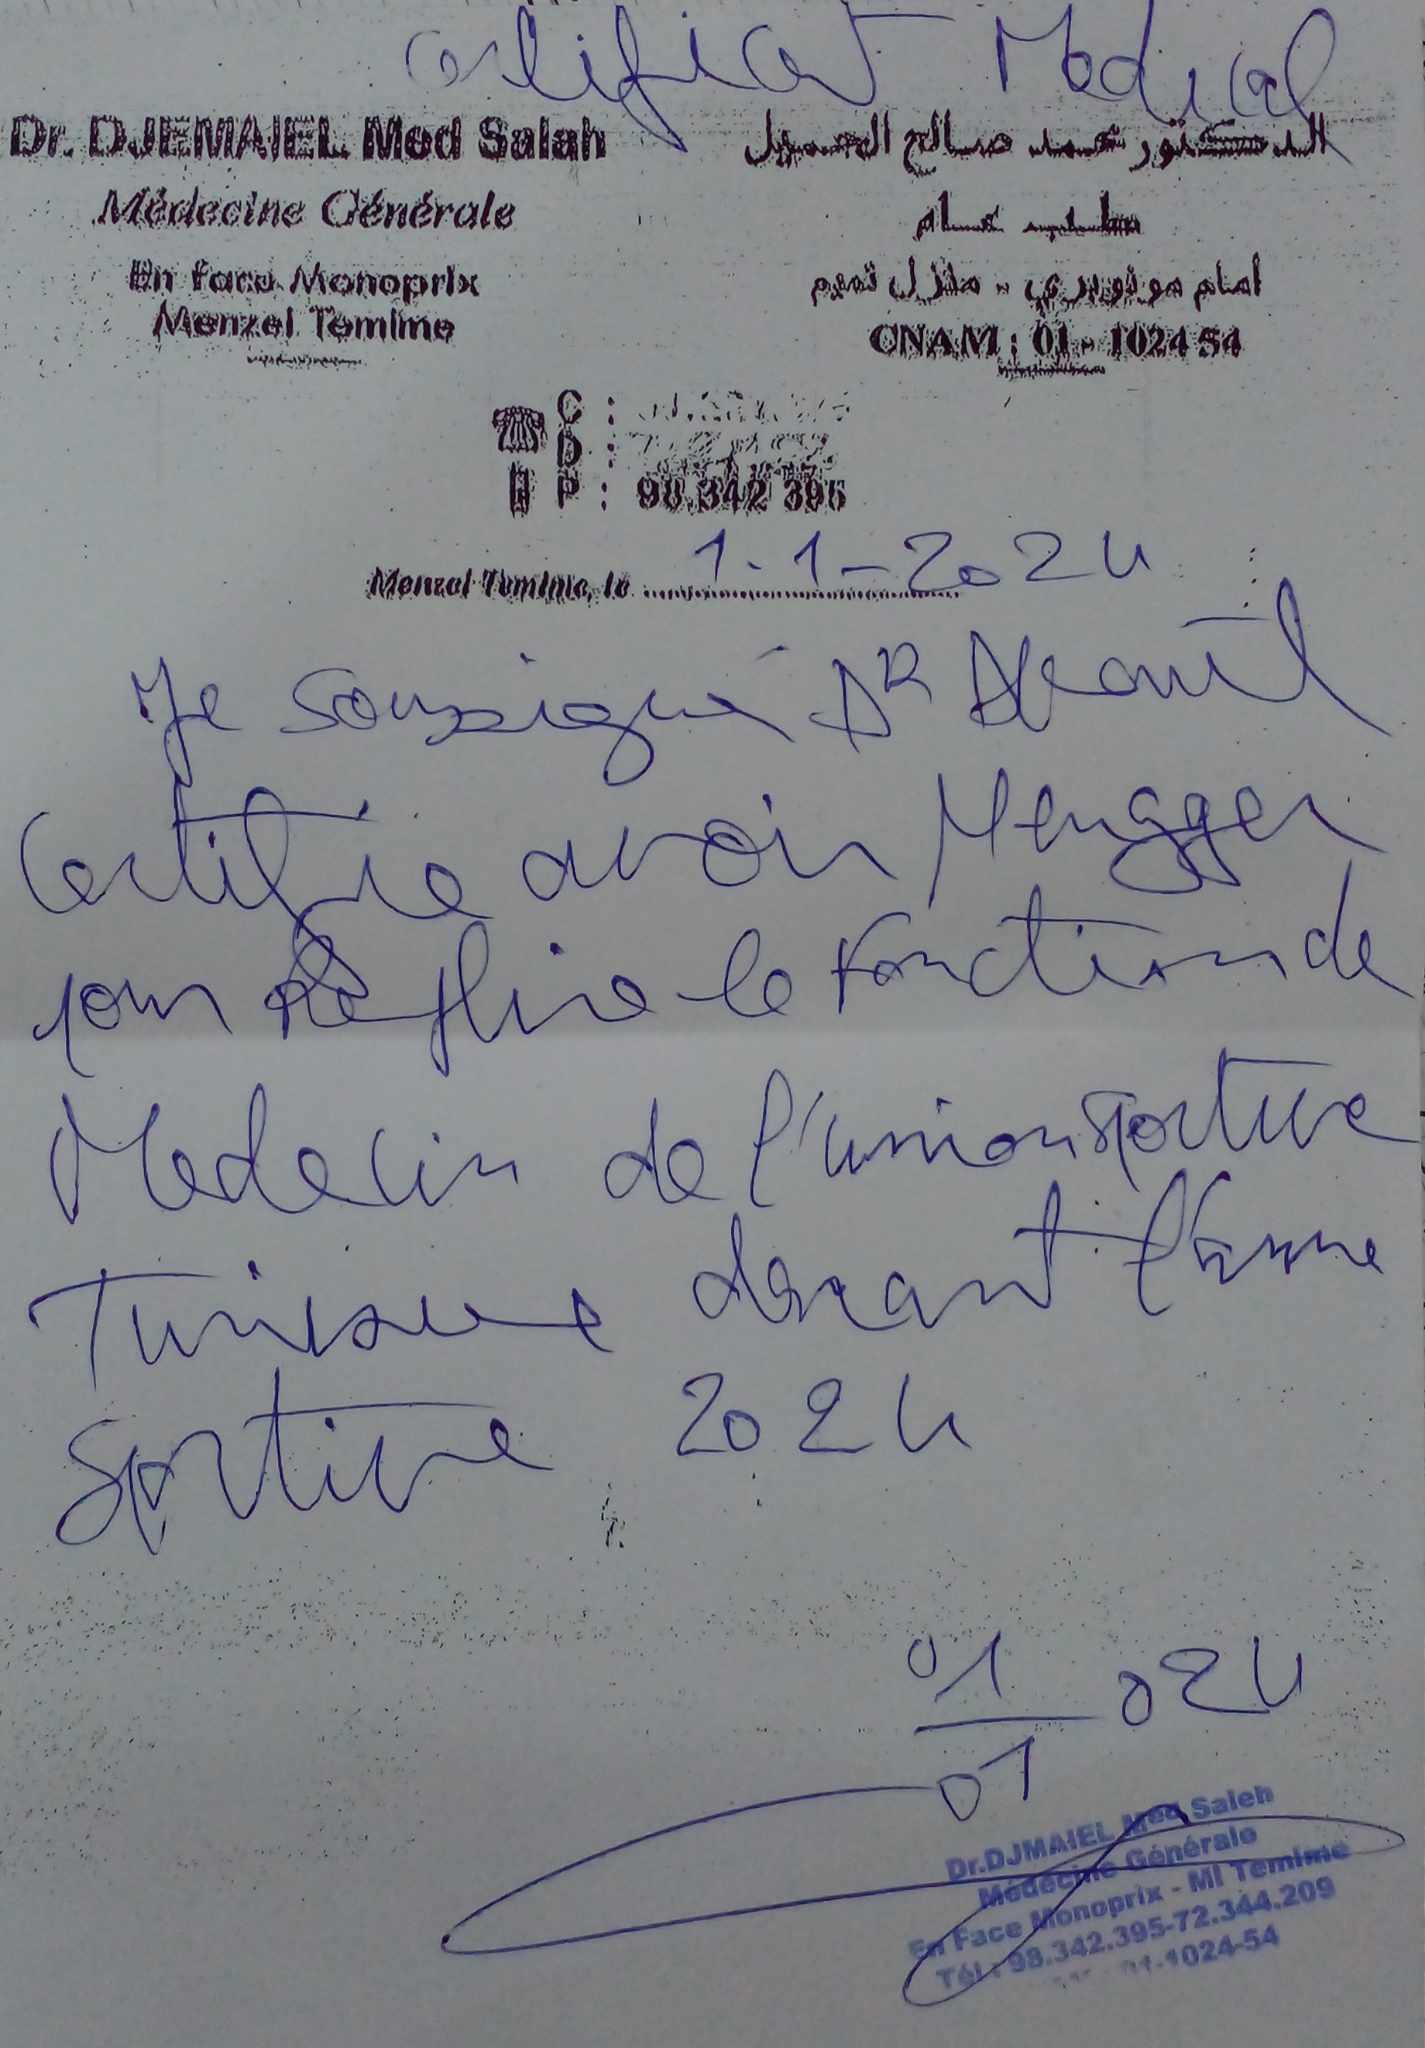 Certificat Medical
Dr. DJEMAIEL Med Salah
Médecine Générale
En face Monoprix
Menzel Temime
الدكتور محمد صالح الجميل
طبيب عام
امام مونوبري - منزل تميم
CNAM : 01 - 1024 54
C :
D :
P : 98.342 395
Menzel Temime, le 1-1-2024
Je soussigné DR
Certifie avoir
pour le fonction de
Medecin de l'union sportive
Tunisienne durant l'anne
sportive 2024
01/01 024
Dr.DJMAIEL Med Saleh
Médecine Générale
En Face Monoprix - Ml Temime
Tél : 98.342.395-72.344.209
01-1024-54